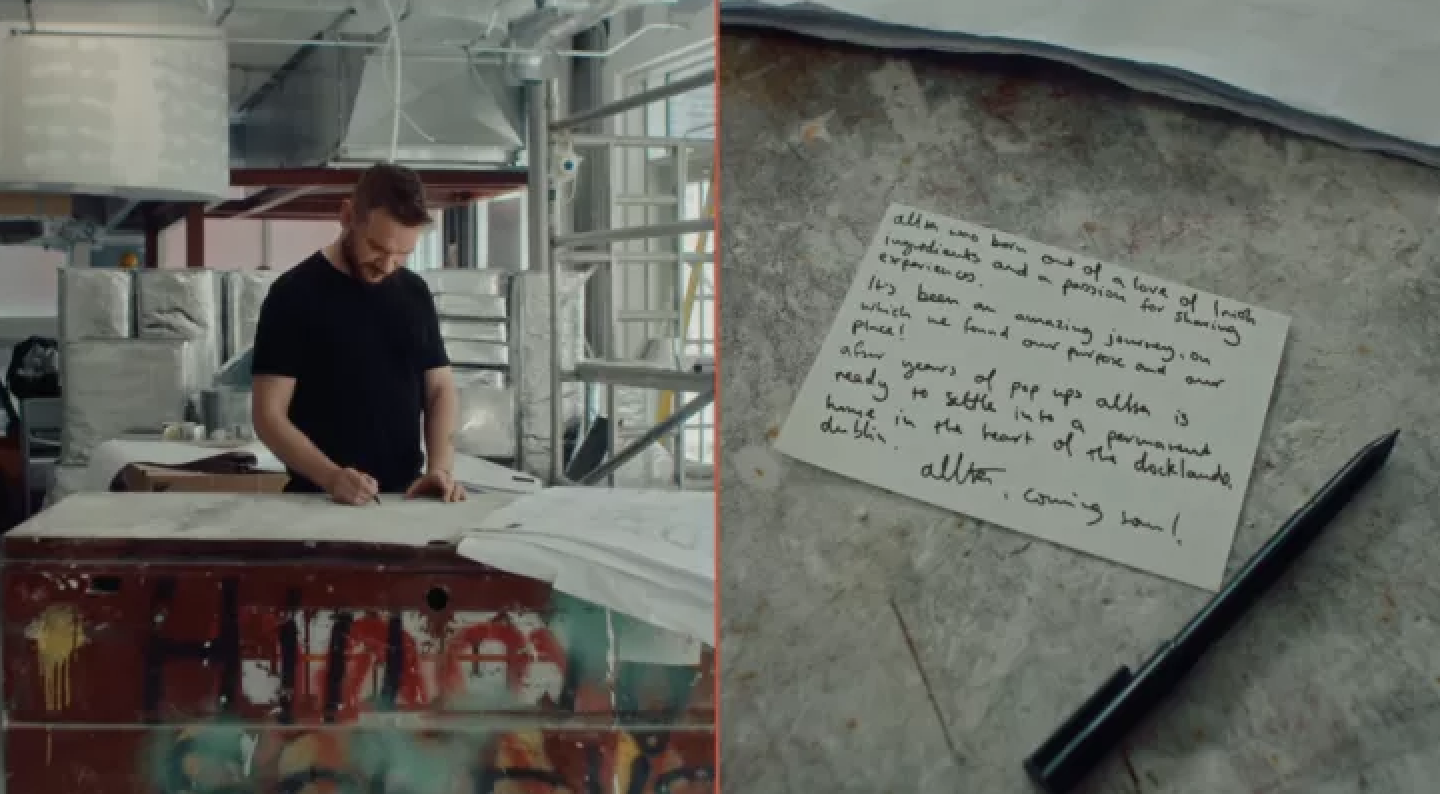 allta was born out of a love of Irish
ingredients and a passion for sharing
experiences.
It's been an amazing journey, on
which we found our purpose and our
place!
after years of pop ups allta is
ready to settle into a permanent
home in the heart of the docklands,
dublin.
allta, coming soon!